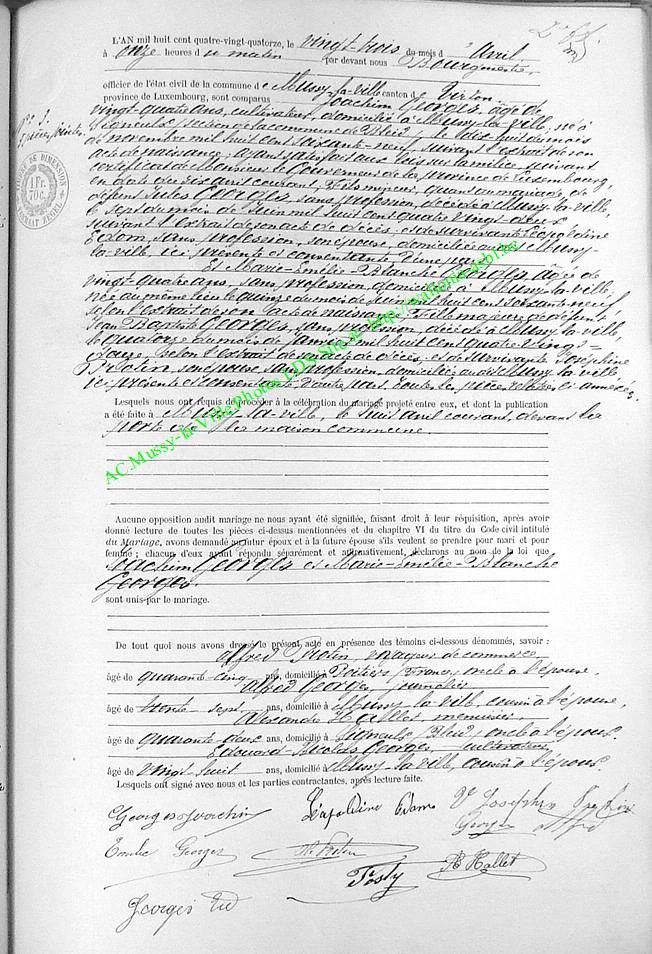 L'AN mil huit cent quatre-vingt-quatorze, le vingt-trois du mois d'Avril
à onze heures du matin par devant nous Bourgmestre,
officier de l'état civil de la commune de Mussy-la-ville canton de Virton
province de Luxembourg, sont comparus Joachim Georges, âgé de
vingt-quatre ans, cultivateur, domicilié à Mussy-la-ville, né à
Signeulx, section de la commune de Bleid, le dix-huit du mois
de novembre mil huit cent soixante-neuf, suivant l'extrait de son
acte de naissance; ayant satisfait aux lois sur la milice suivant
certificat de Monsieur le Gouverneur de la province de Luxembourg,
en date du six avril courant, fils mineur, quant au mariage, de
défunt Jules Georges, sans profession, décédé à Mussy-la-ville,
le sept du mois de Juin mil huit cent quatre vingt-deux
suivant l'extrait de son acte de décès; et de survivante Léopoldine
Edom, sans profession, son épouse, domiciliée au dit Mussy-
la-ville, ici présente et consentante D'une part
Et Marie-Emélie-Blanche Georges, âgée de
vingt-quatre ans, sans profession, domiciliée à Mussy-la-ville,
née au même lieu le quinze du mois de mil huit cent soixante-neuf,
selon l'extrait de son acte de naissance, Fille majeure de défunt
Jean Baptiste Georges, sans profession, décédé à Mussy-la-ville,
le quatorze du mois de janvier mil huit cent quatre vingt-
selon l'extrait de son acte de décès; et de survivante Joséphine
Protin, son épouse, sans profession, domiciliée au dit Mussy-la-ville
ici présente et consentante D'autre part. toutes les pièces relatées ci-annexées.
Lesquels nous ont requis de procéder à la célébration du mariage projeté entre eux, et dont la publication
a été faite à Mussy-la-ville, le huit avril courant, devant la
porte de la maison commune
Aucune opposition audit mariage ne nous ayant été signifiée, faisant droit à leur réquisition, après avoir
donné lecture de toutes les pièces ci-dessus mentionnées et du chapitre VI du titre du Code civil intitulé
du Mariage, avons demandé au futur époux et à la future épouse s'ils veulent se prendre pour mari et pour
femme; chacun d'eux ayant répondu séparément et affirmativement, déclarons au nom de la loi que
Joachim Georges et Marie-Emélie-Blanche
Georges
sont unis par le mariage.
De tout quoi nous avons dressé le présent acte en présence des témoins ci-dessous dénommés, savoir :
Alfred Protin, voyageur de commerce,
âgé de quarante-cinq ans, domicilié à Poitiers (France) oncle à l'épouse,
Alfred Georges, journalier
âgé de trente-sept ans, domicilié à Mussy-la-ville, cousin à l'épouse,
Alexandre Hallet, menuisier,
âgé de quarante-deux ans, domicilié à Signeulx (Bleid), oncle à l'épouse
Edouard Georges, cultivateur
âgé de vingt-huit ans, domicilié à Mussy-la-ville, cousin à l'époux.
Lesquels ont signé avec nous et les parties contractantes, après lecture faite.
Georges Joachim
Léopoldine Edom
Ve Joséphine Protin
Emélie Georges
A. Protin
Georges Alfred
Tosty
A Hallet
Georges Ed
TIMBRE DE DIMENSION
1 Fr.
70 C.
AC.Mussy-la-Ville Photos LDS Site © http://wallonia.asbl.be